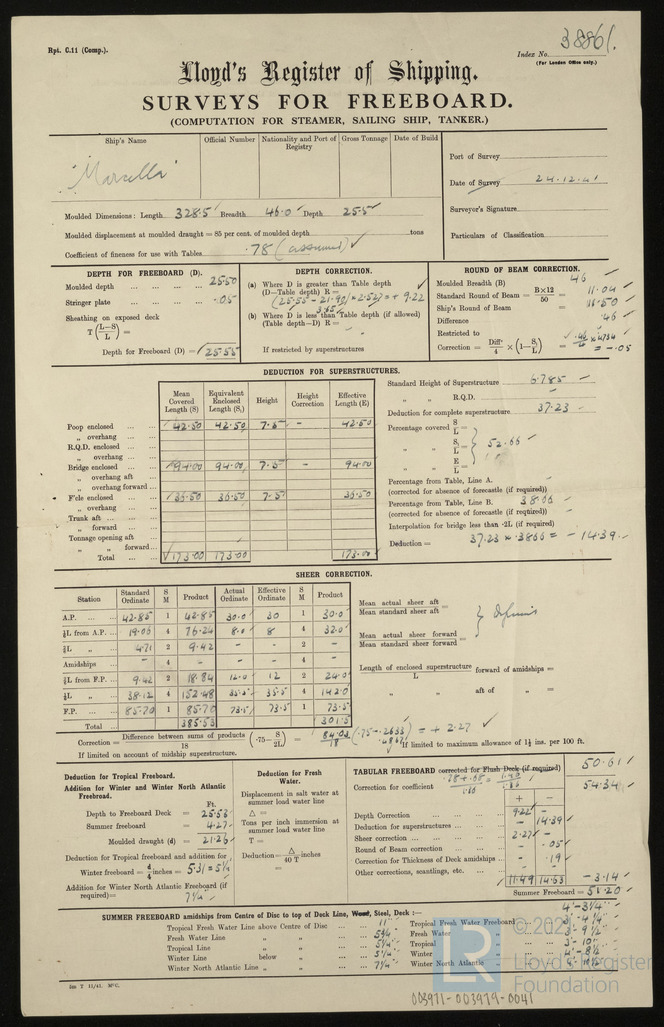 Rpt. C.11 (Comp.).
Index No. 38861.
(For London Office only.)
Lloyd's Register of Shipping.
SURVEYS FOR FREEBOARD.
(COMPUTATION FOR STEAMER, SAILING SHIP, TANKER.)
Ship's Name Official Number Nationality and Port of Registry Gross Tonnage Date of Build
"Marcella"
Port of Survey
Date of Survey 24.12.41
Surveyor's Signature
Particulars of Classification
Moulded Dimensions: Length 328.5 Breadth 46.0 Depth 25.5
Moulded displacement at moulded draught = 85 per cent. of moulded depth tons
Coefficient of fineness for use with Tables .78 (assumed)
DEPTH FOR FREEBOARD (D).
Moulded depth 25.50
Stringer plate .05
Sheathing on exposed deck
T (L-S/L) =
Depth for Freeboard (D) = 25.55
DEPTH CORRECTION.
(a) Where D is greater than Table depth
(D-Table depth) R =
(25.55 - 21.90) × 2.527 = + 9.22
3.65
(b) Where D is less than Table depth (if allowed)
(Table depth-D) R =
If restricted by superstructures
ROUND OF BEAM CORRECTION.
Moulded Breadth (B) 46
Standard Round of Beam = B×12/50 = 11.04
Ship's Round of Beam = 11.50
Difference .46
Restricted to
Correction = Diffce/4 × (1-S1/L) = .46/4 × .4734 = -.05
DEDUCTION FOR SUPERSTRUCTURES.
Mean Covered Length (S) Equivalent Enclosed Length (S1) Height Height Correction Effective Length (E)
Poop enclosed 42.50 42.50 7.5 - 42.50
" overhang
R.Q.D. enclosed
" overhang
Bridge enclosed 94.00 94.00 7.5 - 94.00
" overhang aft
" overhang forward
F'cle enclosed 36.50 36.50 7.5 36.50
" overhang
Trunk aft
" forward
Tonnage opening aft
" " forward
Total 173.00 173.00 173.00
Standard Height of Superstructure 6.785
" " R.Q.D.
Deduction for complete superstructure 37.23
Percentage covered S/L =
" " S1/L = 52.66
" " E/L =
Percentage from Table, Line A.
(corrected for absence of forecastle (if required))
Percentage from Table, Line B. 38.66
(corrected for absence of forecastle (if required))
Interpolation for bridge less than ·2L (if required)
Deduction = 37.23 × .3866 = - 14.39
SHEER CORRECTION.
Station Standard Ordinate S M Product Actual Ordinate Effective Ordinate S M Product
A.P. 42.85 1 42.85 30.0 30 1 30.0
⅙L from A.P. 19.06 4 76.24 8.0 8 4 32.0
⅓L " 4.71 2 9.42 - - 2 -
Amidships - 4 - - - 4 -
⅓L from F.P. 9.42 2 18.84 12.0 12 2 24.0
⅙L " 38.12 4 152.48 35.5 35.5 4 142.0
F.P. 85.70 1 85.70 73.5 73.5 1 73.5
Total 385.53 301.5
Mean actual sheer aft
Mean standard sheer aft =
Mean actual sheer forward
Mean standard sheer forward =
Length of enclosed superstructure/L forward of amidships =
" " aft of " =
Correction = Difference between sums of products/18 (·75 - S/2L) = 84.03/18 (.75 - .2633) = + 2.27
.4867
If limited on account of midship superstructure.
If limited to maximum allowance of 1½ ins. per 100 ft.
Deduction for Tropical Freeboard.
Addition for Winter and Winter North Atlantic Freeboard.
Ft.
Depth to Freeboard Deck = 25.55
Summer freeboard = 4.27
Moulded draught (d) = 21.28
Deduction for Tropical freeboard and addition for
Winter freeboard = d/4 inches = 5.31 = 5¼
Addition for Winter North Atlantic Freeboard (if required) = 7¼"
Deduction for Fresh Water.
Displacement in salt water at summer load water line
Δ =
Tons per inch immersion at summer load water line
T =
Deduction = Δ/40 T inches
=
TABULAR FREEBOARD corrected for Flush Deck (if required) 50.61
Correction for coefficient .78+.68/1.36 = 1.46/1.36 54.34
+ -
Depth Correction 9.22 -
Deduction for superstructures - 14.39
Sheer correction 2.27 -
Round of Beam correction - .05
Correction for Thickness of Deck amidships - .19
Other corrections, scantlings, etc. - -
11.49 14.63 -3.14
Summer Freeboard = 51.20
SUMMER FREEBOARD amidships from Centre of Disc to top of Deck Line, Wood, Steel, Deck:— 4'-3¼"
Tropical Fresh Water Line above Centre of Disc 11"
Fresh Water Line " " 5¾"
Tropical Line " " 5¼"
Winter Line below " 5¼"
Winter North Atlantic Line " " 7¼"
Tropical Fresh Water Freeboard 3'-4¼"
Fresh Water " 3'-9½"
Tropical " 3'-10"
Winter " 4'-8½"
Winter North Atlantic "
© 2021
LR
Lloyd's Register
Foundation
003971-003979-0041